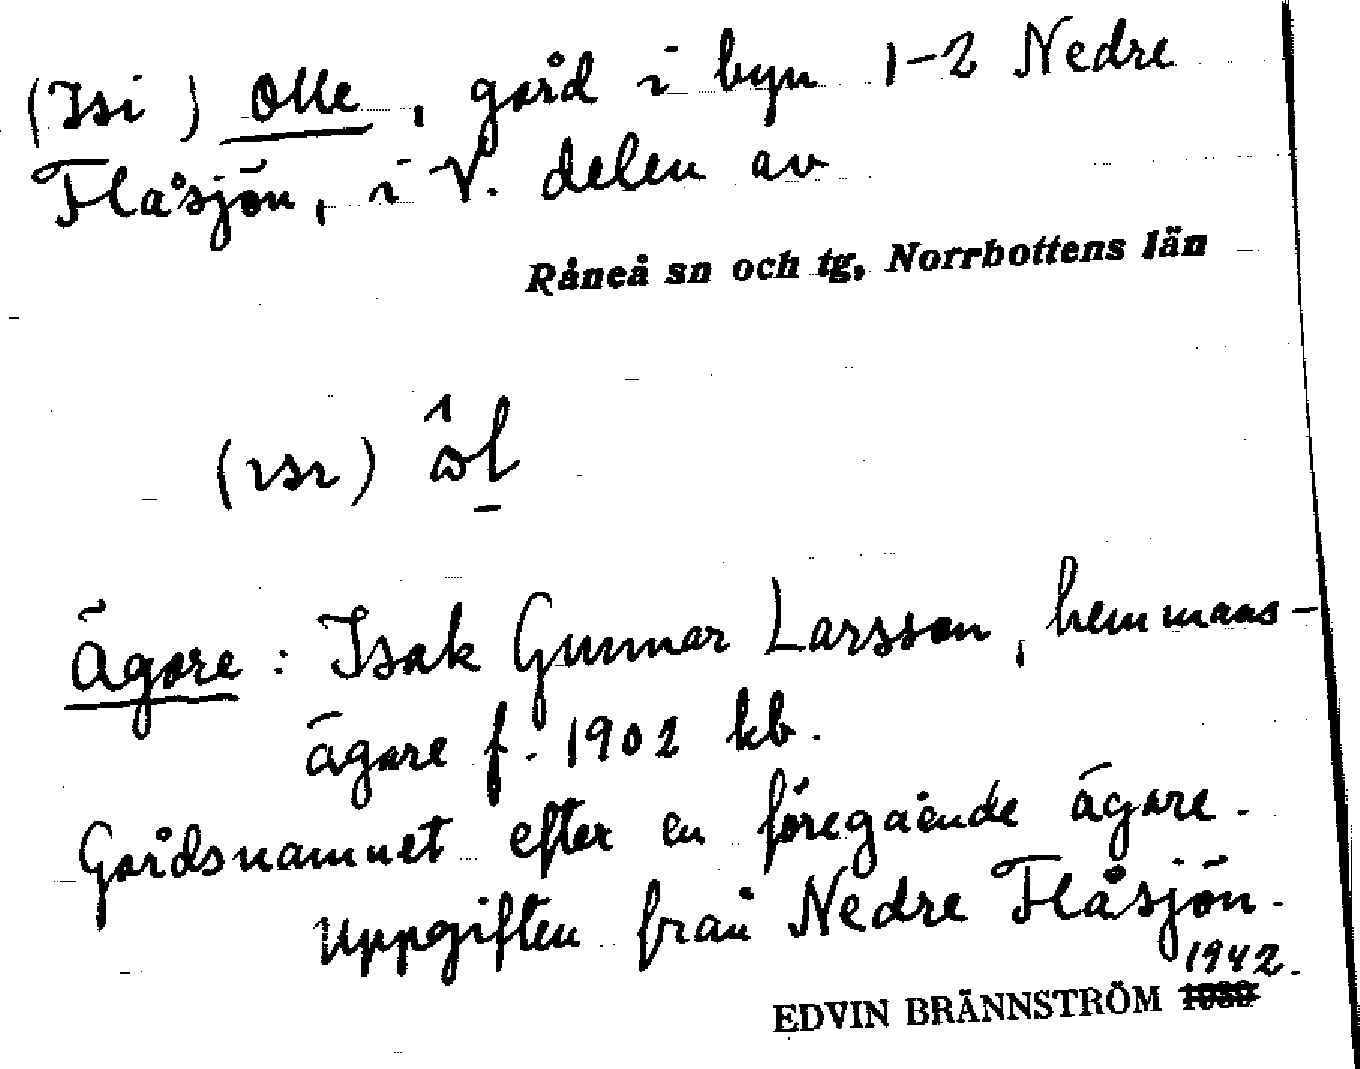 (Isi) Olle, gård i byn 1-2 Nedre
Flåsjön, i V. delen av
Råneå sn och tg, Norrbottens län
(ısı)
Ägare: Isak Gunnar Larsson, hemmans-
ägare f. 1902 kb.
Gårdsnamnet efter en föregående ägare.
Uppgiften från Nedre Flåsjön.
1942.
EDVIN BRÄNNSTRÖM 1939